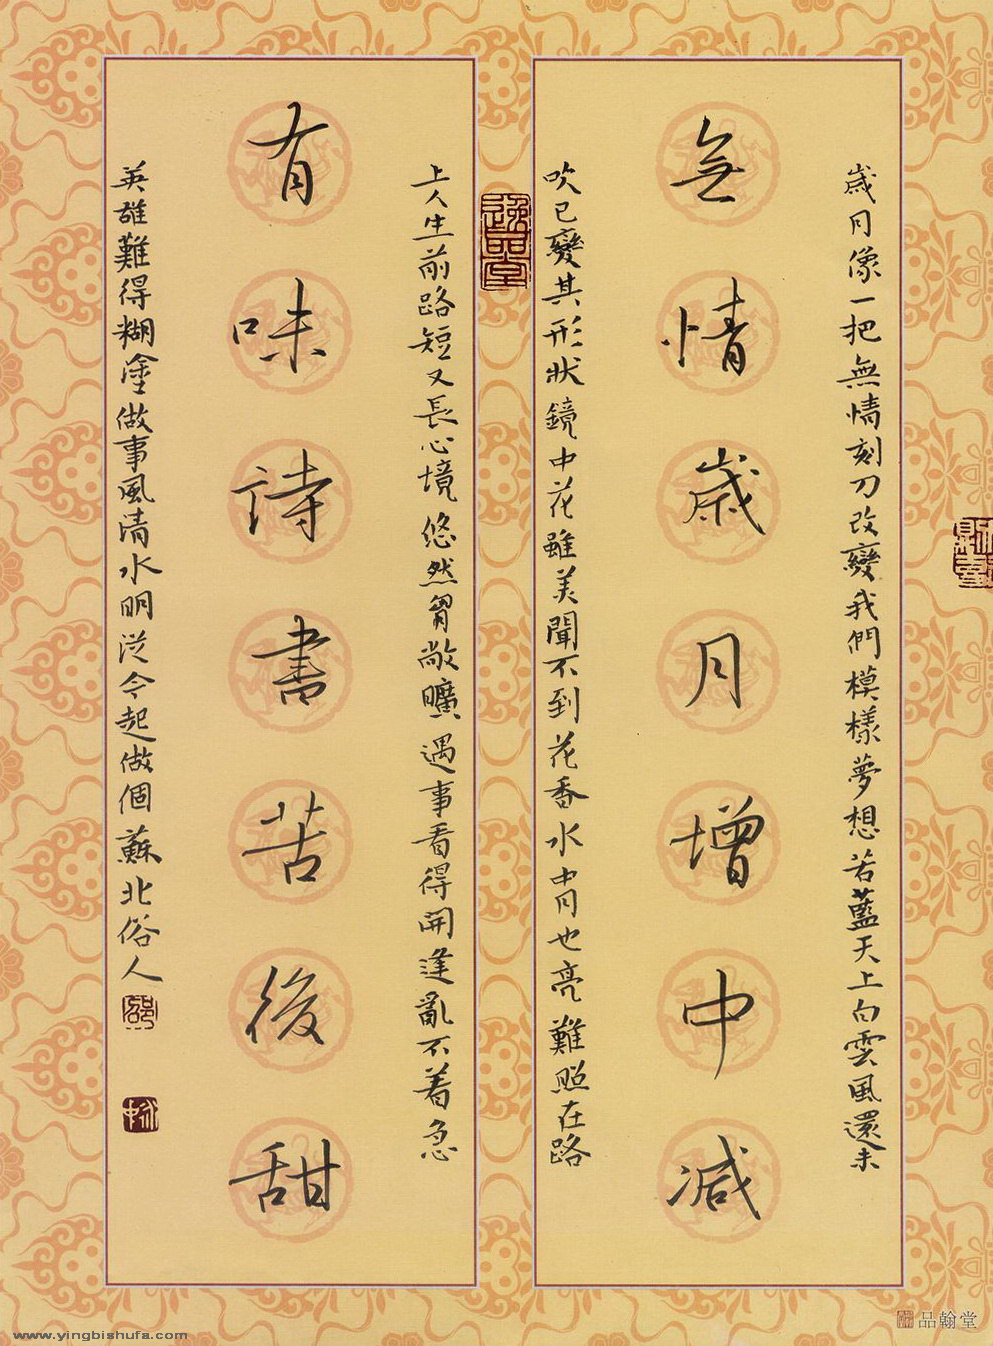 歲月像一把無情刻刀改變我們模樣夢想若藍天上白雲風還未
無情歲月增中減
吹已變其形狀鏡中花雖美聞不到花香水中月也亮難照在路
逸品堂
上人生前路短又長心境悠然胷敞曠遇事看得開逢亂不着急
有味詩書苦後甜
英雄難得糊塗做事風清水明從今起做個蘇北俗人
www.yingbishufa.com
品翰堂